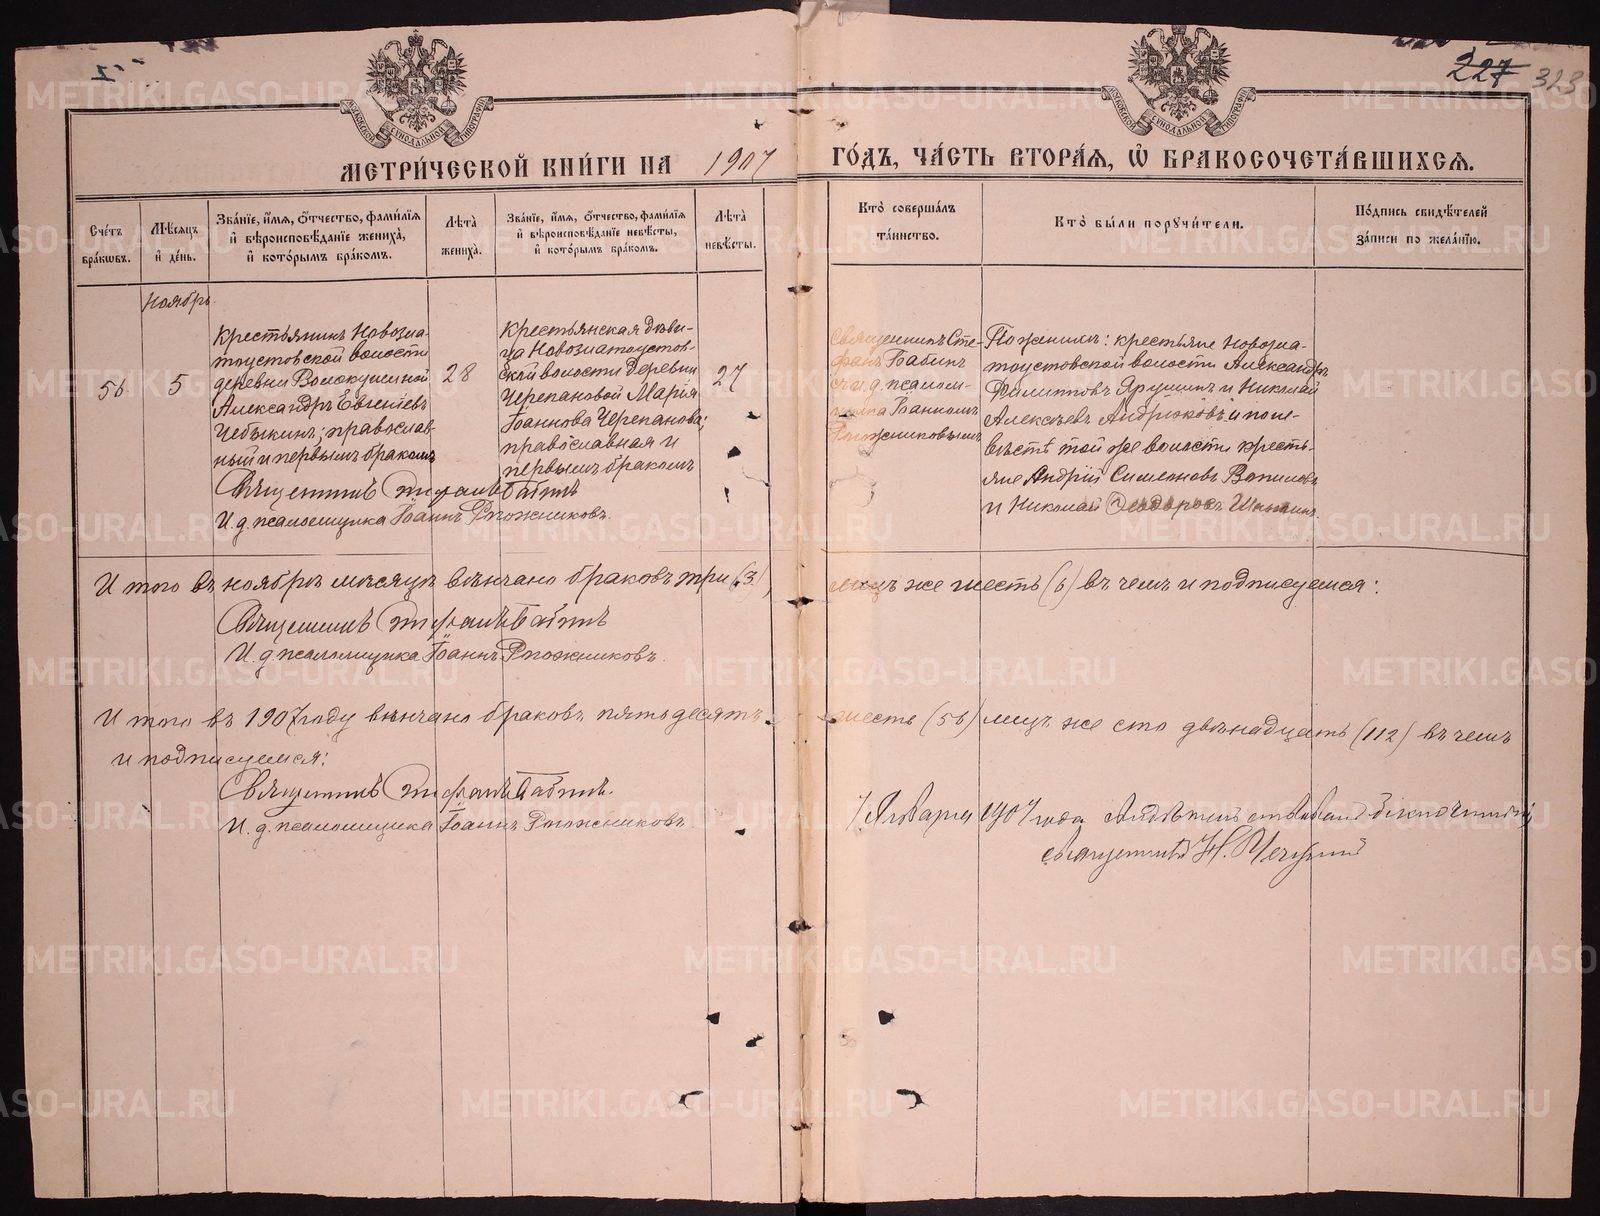 227 323
МОСКОВСКОЙ СѴНОДАЛЬНОЙ ТИПОГРАФІИ
МОСКОВСКОЙ СѴНОДАЛЬНОЙ ТИПОГРАФІИ
МЕТРИ́ЧЕСКОЙ КНИ́ГИ НА 1907 ГО́ДЪ, ЧА́СТЬ ВТОРА́Я, Ѽ БРАКОСОЧЕТА́ВШИХСЯ.
Сче́тъ бра́кѡвъ.
Мѣ́сяцъ и҆ де́нь.
Зва́нїе, и҆́мя, ѻ҆́тчество, фами́лїя и҆ вѣроисповѣ́данїе жениха̀, и҆ кото́рымъ бра́комъ.
Лѣта̀ жениха̀.
Зва́нїе, и҆́мя, ѻ҆́тчество, фами́лїя и҆ вѣроисповѣ́данїе невѣ́сты, и҆ кото́рымъ бра́комъ.
Лѣта̀ невѣ́сты.
Кто̀ соверша́лъ та́инство.
Кто̀ бы́ли порꙋчи́тели.
По́дпись свидѣ́телей за́писи по жела́нїю.
Ноябрь
56
5
Крестьянинъ Новозла-
тоустовской волости
деревни Волокушиной
Александръ Евгеніевъ
Чебыкинъ; православ-
ный и первымъ бракомъ
28
Крестьянская дѣви-
ца Новозлатоустов-
ской волости деревни
Черепановой Марія
Іоаннова Черепанова;
православная и
первымъ бракомъ
27
Священникъ Сте-
фанъ Бабинъ
съ и. д. псалом-
щика Іоанномъ
Рогожниковымъ
По женихѣ: крестьяне Новозла-
тоустовской волости Александръ
Филипповъ Ярушинъ и Николай
Алексѣевъ Андрюковъ и по не-
вѣстѣ той же волости кресть-
яне Андрей Симеоновъ Вопиловъ
и Николай Ѳеодоровъ
Священникъ Стефанъ Бабинъ
И. д. псаломщика Іоаннъ Рогожниковъ.
И того въ ноябрѣ мѣсяцѣ вѣнчано браковъ три (3), лицъ же шесть (6) въ чемъ и подписуемся:
Священникъ Стефанъ Бабинъ
И. д. псаломщика Іоаннъ Рогожниковъ.
И того въ 1907 году вѣнчано браковъ пятьдесятъ шесть (56) лицъ же сто двѣнадцать (112) въ чемъ
и подписуемся:
Священникъ Стефанъ Бабинъ.
И. д. псаломщика Іоаннъ Рогожниковъ.
Января 1907 года
священникъ Н.
METRIKI.GASO-URAL.RU